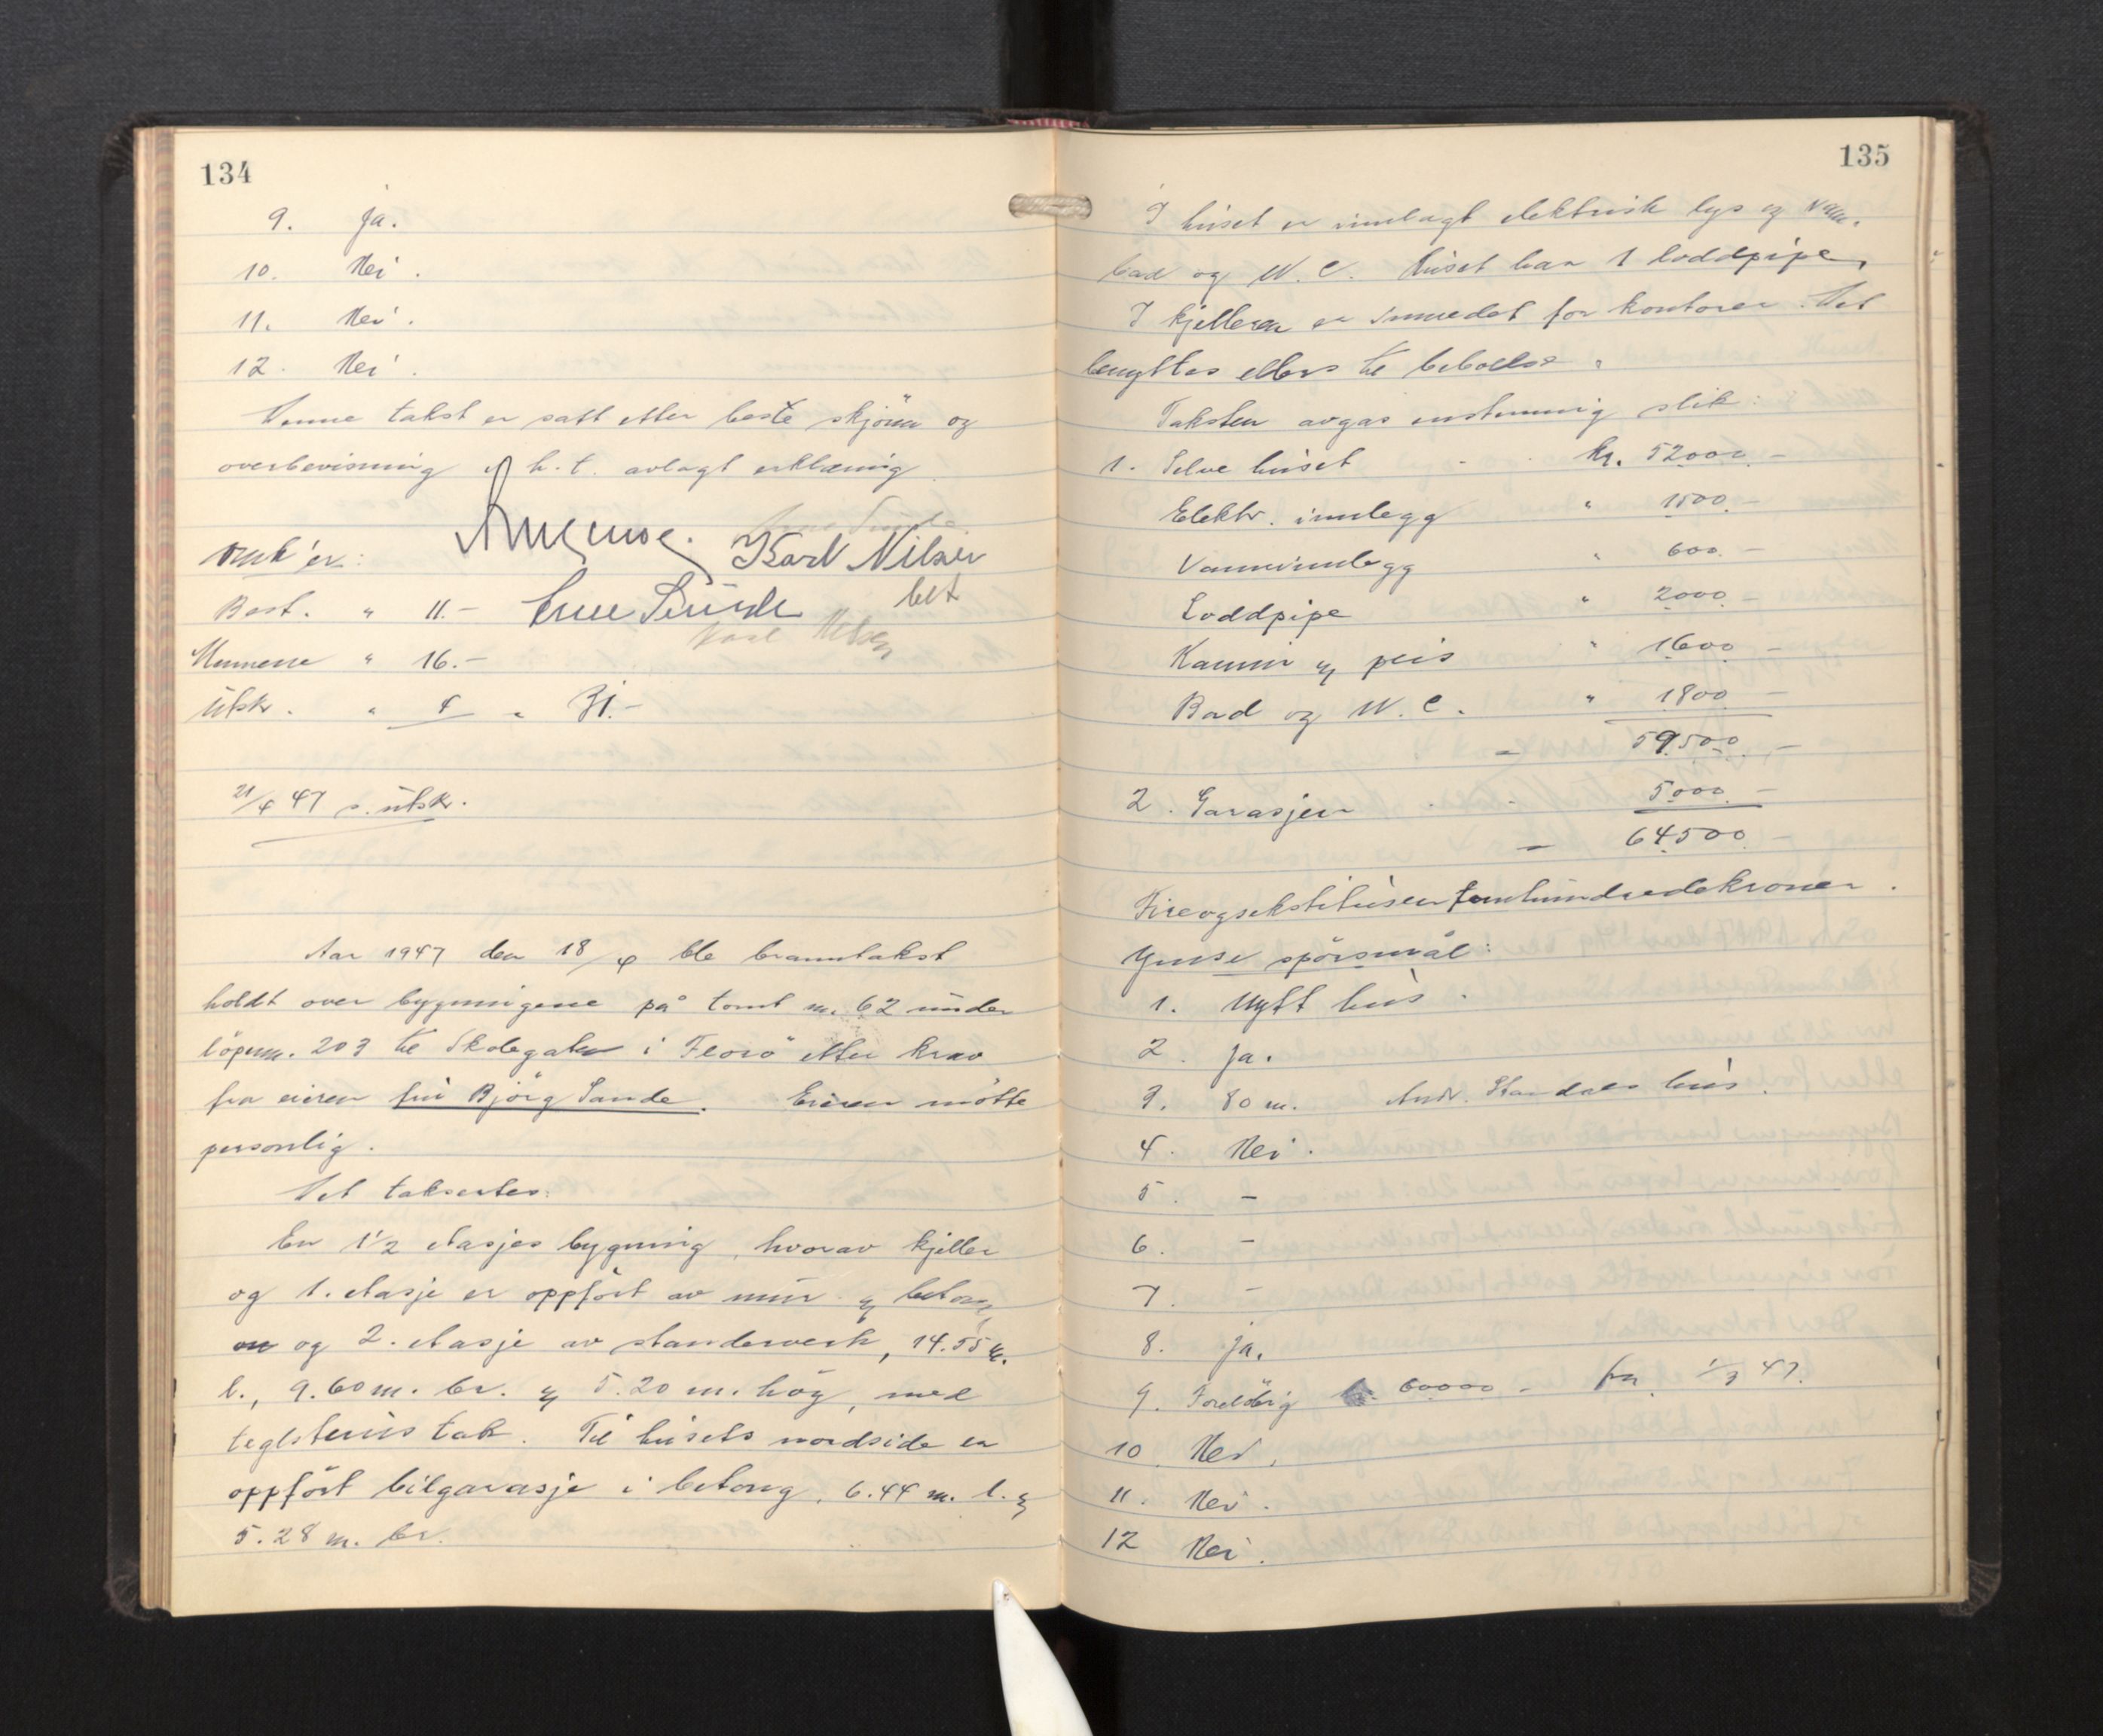 134
9. Ja.
10. Nei.
11. Nei.
12. Nei.
Denne takst er satt etter beste skjönn og
overbevisning i h.t. avlagt erklæring.
Karl Nilsen
Omk'er:
Best. " 11.- Arne Sunde bet
Karl Nilsen
Mennene " 16.-
Utskr. " 4 " 31.-
21/4 47 s. utskr.
Aar 1947 den 18/4 ble branntakst
holdt over bygningene på tomt nr. 62 under
löpenr. 203 til Skolegaten i Florö etter krav
fra eieren fru Björg Sande. Eieren mötte
personlig.
Det takseres:
En 1½ etasjes bygning, hvorav kjeller
og 1. etasje er oppfört av mur og betong
og 2. etasje av standerverk, 14.55 m.
l., 9.60 m. br. og 5.20 m. høg, med
teglsteins tak. Til husets nordside er
oppfört bilgarasje i betong, 6.44 m. l. og
5.28 m. br.
135
I huset er innlagt elektrisk lys og vann.
bad og W.C. Huset har 1 loddpipe,
I kjelleren er innredet for kontorer. Det
benyttes ellers til beboelse.
Taksten avgas enstemmig slik:
1. Selve huset kr. 52000.-
Elektr. innlegg " 1500.-
Vanninnlegg " 600.-
Loddpipe " 2000.-
Kamin og peis " 1600.-
Bad og W.C. " 1800.-
59500.-
2. Garasjen 5000.-
64500.-
Fireogsekstitusenfemhundredekroner.
Ymse spörsmål:
1. Nytt hus.
2. Ja.
3. 80 m. Andr. Standals hus.
4. Nei.
5. -
6. -
7. -
8. Ja.
9. Forelöbig kr. 60000.- fra 1/3 47.
10. Nei.
11. Nei.
12 Nei.